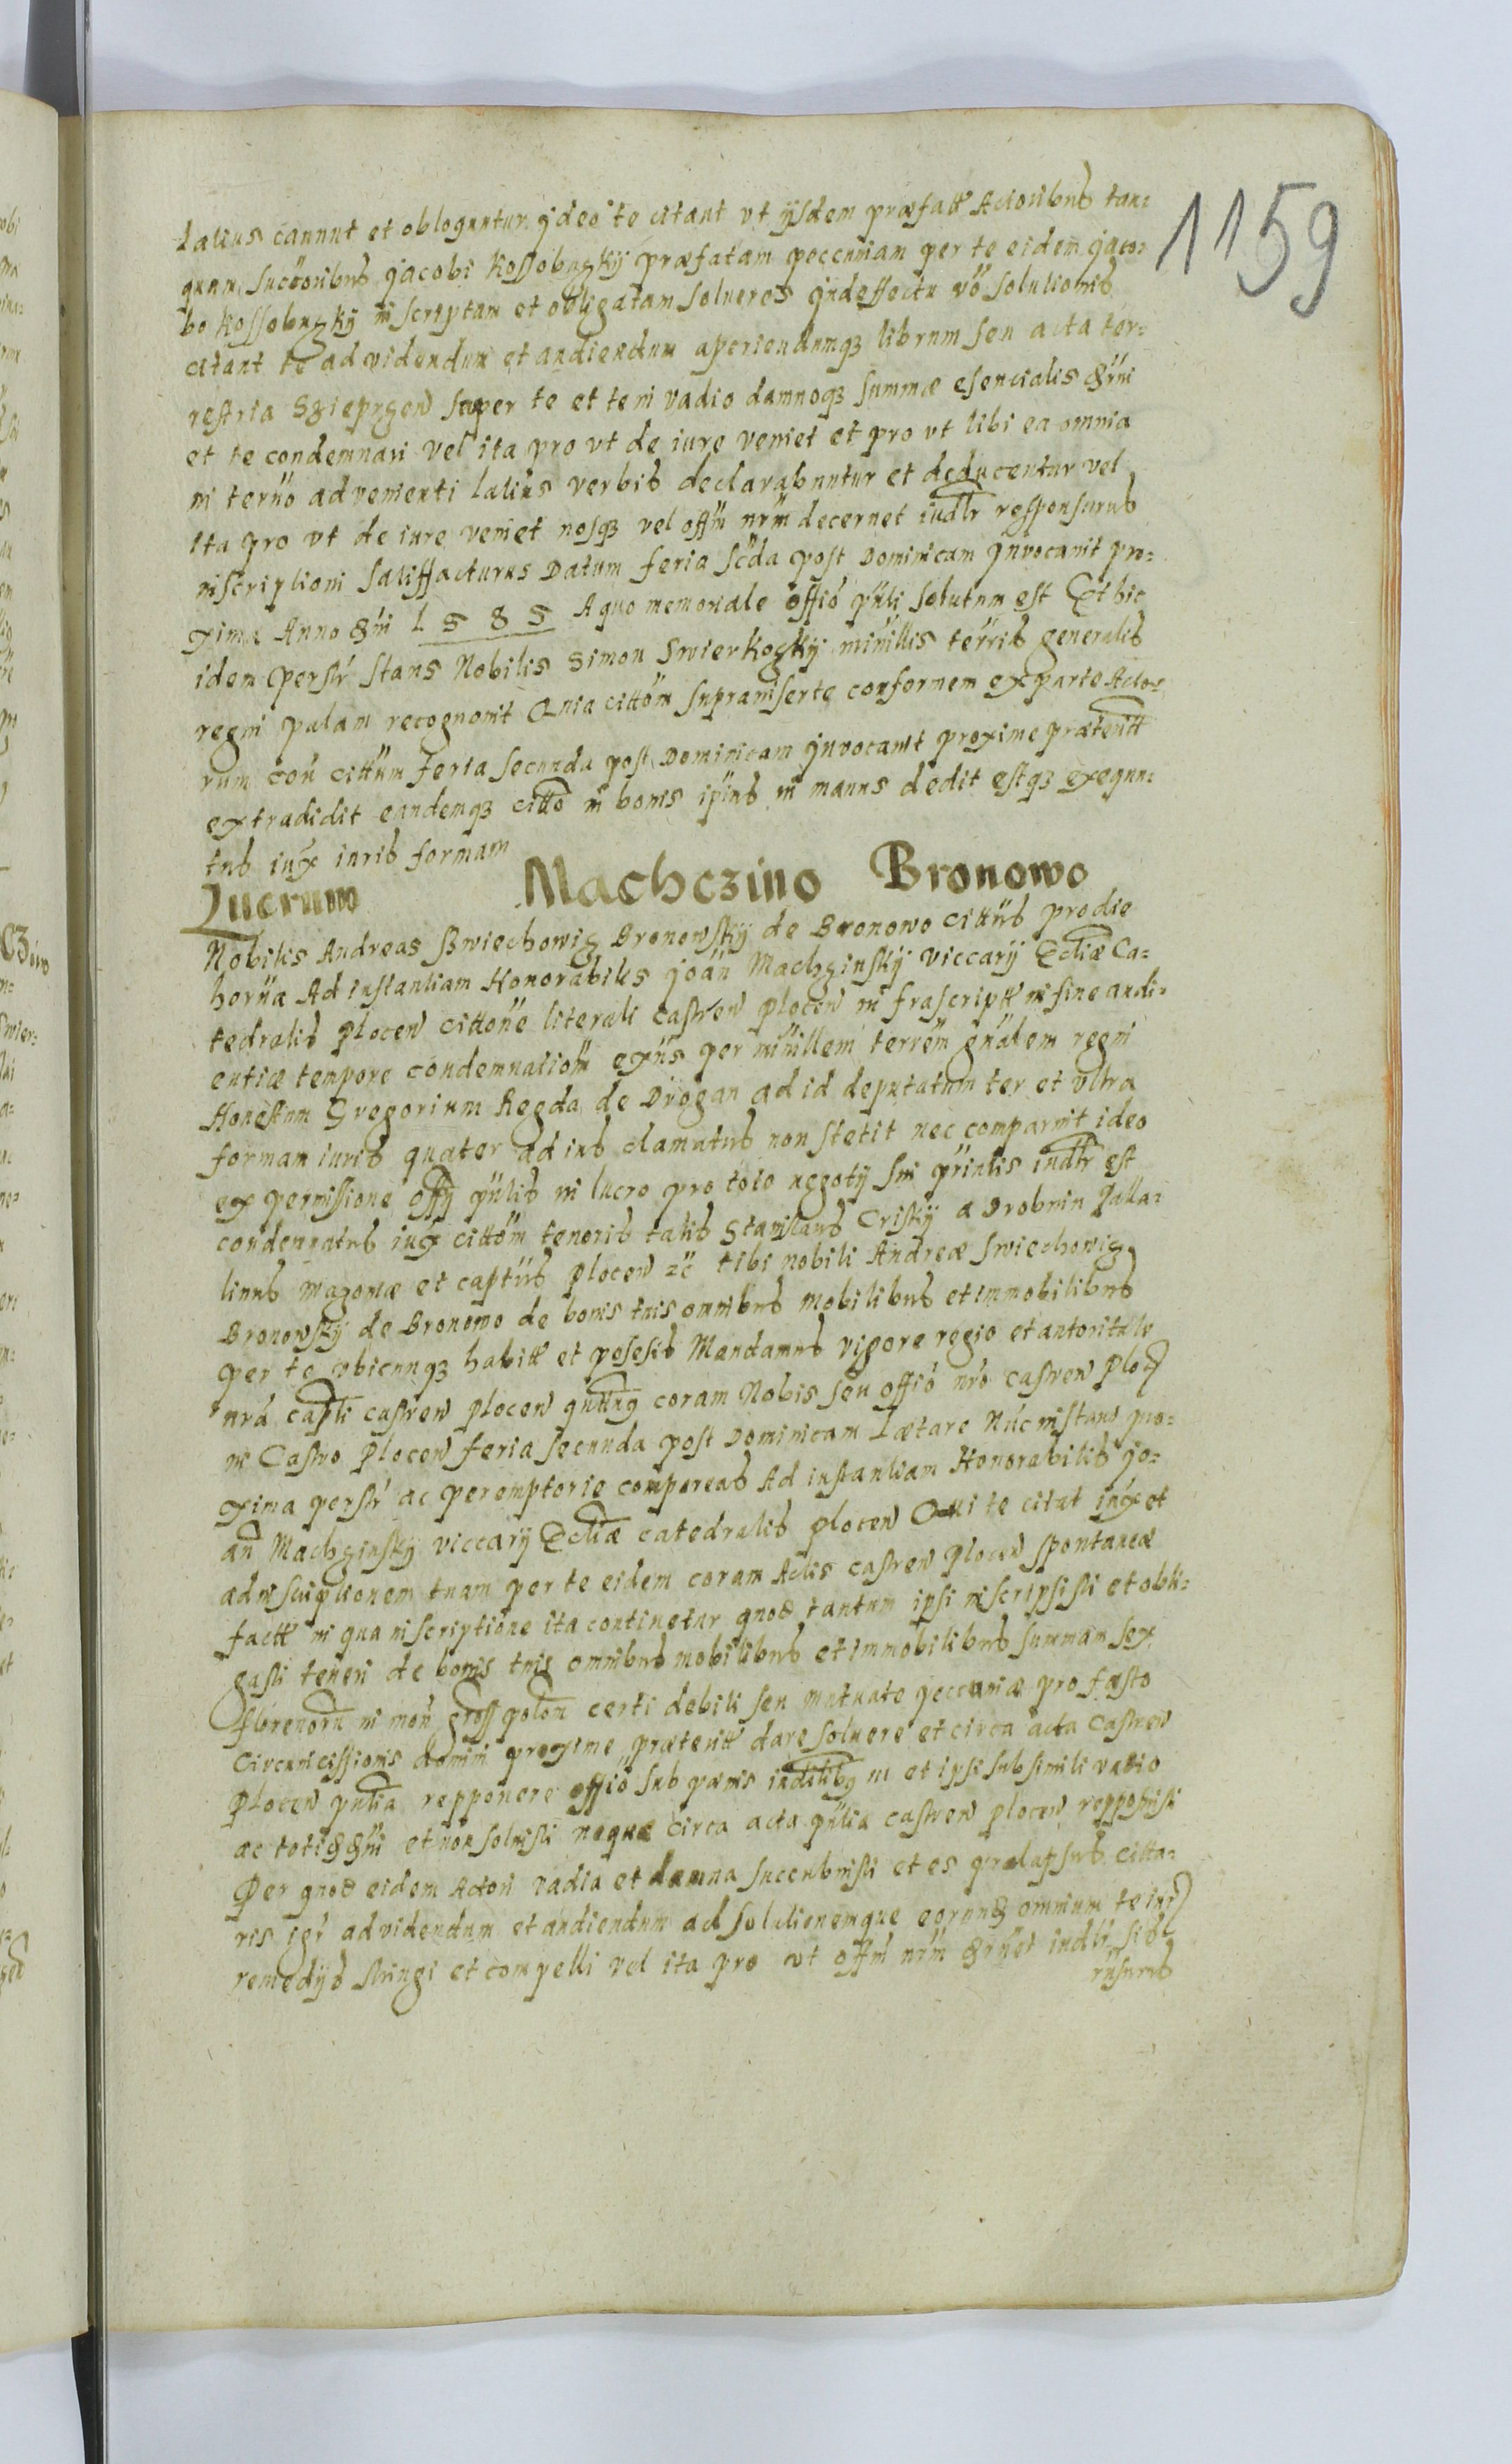 1159
latius canunt et obloquntur ideo te citant vt ijsdem præfatt Actoribus tan=
quam Suctoribus Jacobi Kossobuczkÿ præfatam peccuniam per te eidem Jaco=
bo Kossobuczkÿ inscriptam et obligatam solueres Jndeffectu vo solutionis
citant te ad videndum et audiendum aperiendumqz librum seu acta ter=
restria Szieprgen super te et te in vadio damnoqz summæ esencialis
et te condemnari vel ita pro vt de iure veniet et pro vt tibi ea omnia
in terno advenienti latius verbis declarabuntur et deducentur vel
Ita pro vt de iure veniet nosqz vel offm nrm decernet iudlr responsurus
inscriptioni satiffacturus Datum feria scda post Dominicam Jnvocauit pro=
xima Anno 1585 A quo memoriale offio puli solutum est Et hic
idem perslr stans Nobilis Simon Swierkoczkÿ minllis terris generalis
regni palam recognouit Quia cittom suprainserte conformem ex parte Acto=
rum con cittum feria secunda post Dominicam Jnvocauit proxime præteritt
extradidit eandemqz citto in bonis ipius in manus dedit estqz exequu=
tus iux iuris formam
Lucrum Machczino Bronowo
Nobilis Andreas Szwiechowicz Bronowskÿ de Bronowo cittus prodie
horna Ad instantiam Honorabilis Joan Machzinskÿ viccarÿ Ecliæ Ca=
tedralis Plocen cittone literali castren plocen in frascriptt in fine audi=
entiæ tempore condemnationu exns per minillem terrem gnalem regni
Honestum Gregorium Regda de Drogan ad id deputatum ter et vltra
formam iuris quater ad ius clamatus non stetit nec comparuit ideo
ex permissione offÿ pulis in lucro pro toto negotÿ sni prinlis iudlr est
condemnatus iux cittom tenoris talis Stanislaus Criskÿ a Drobnin Palla=
tinus Mazouiæ et captus Plocen zc tibi nobili Andreæ Swiechowicz
Bronowskÿ de Bronowo de bonis tuis omnibus mobilibus et immobilibus
per te vbicunqz habitt et posesis Mandamus vigore regio et autoritate
nra capli castren Plocen coram Nobis seu offio nro castren Plocen
in Castro Plocen feria secunda post Dominicam Lætare Nuc instan pro=
xima perslr ac peremptorie compareas Ad instantiam Honorabilis Jo=
an Machzinskÿ viccarÿ Ecliæ catedralis Plocen Qui te citat iux et
ad inscriptionem tuam per te eidem coram Actis castren Plocen spontaneæ
factt in qua inscriptione ita continetur quod tantum ipsi inscripsisti et obli=
gasti teneri de bonis tuis omnibus mobilibus et immobilibus summam sex
florenoru in mon gross polon certi debiti seu mutuate peccuniæ pro fæsto
Circumcissionis domini proxime præteritt dare soluere et circa acta castren
Plocen pulia repponere offio sub pænis iudlibqz in et ipsi sub simili vadio
ac toti et non soluisti neque circa acta pulia castren plocen repposuisti
Per quod eidem Actori vadia et damna sucubuisti et es prolapsus citta=
ris igr ad videndum et audiendum ad solutionemque eorundz omnium te iur
remedÿs stringi et compelli vel ita pro vt offm nrm iudlr sibi
rnsurus